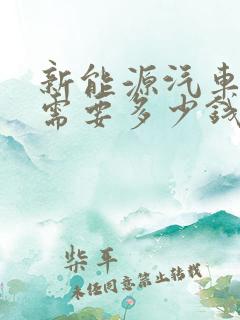 新能源汽车
需要多少钱
柴平
未经同意禁止转载